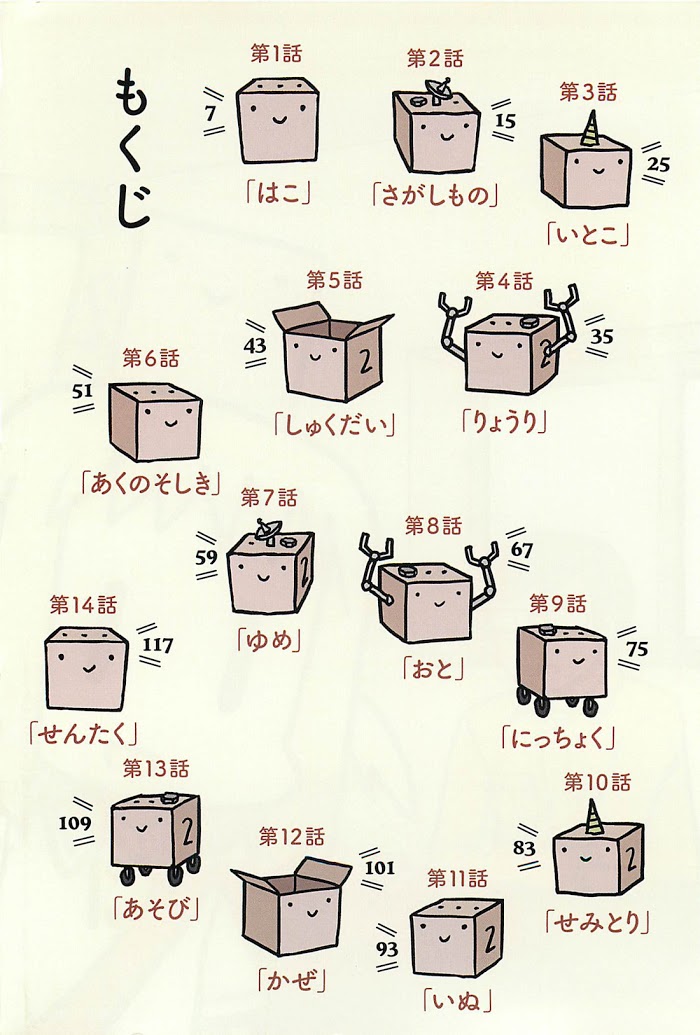 もくじ
第1話
7
「はこ」
第2話
15
「さがしもの」
第3話
25
「いとこ」
第4話
35
2
「りょうり」
第5話
43
2
「しゅくだい」
第6話
51
「あくのそしき」
第7話
59
2
「ゆめ」
第8話
67
「おと」
第9話
75
「にっちょく」
第10話
83
2
「せみとり」
第11話
93
2
「いぬ」
第12話
101
「かぜ」
第13話
109
2
「あそび」
第14話
117
「せんたく」